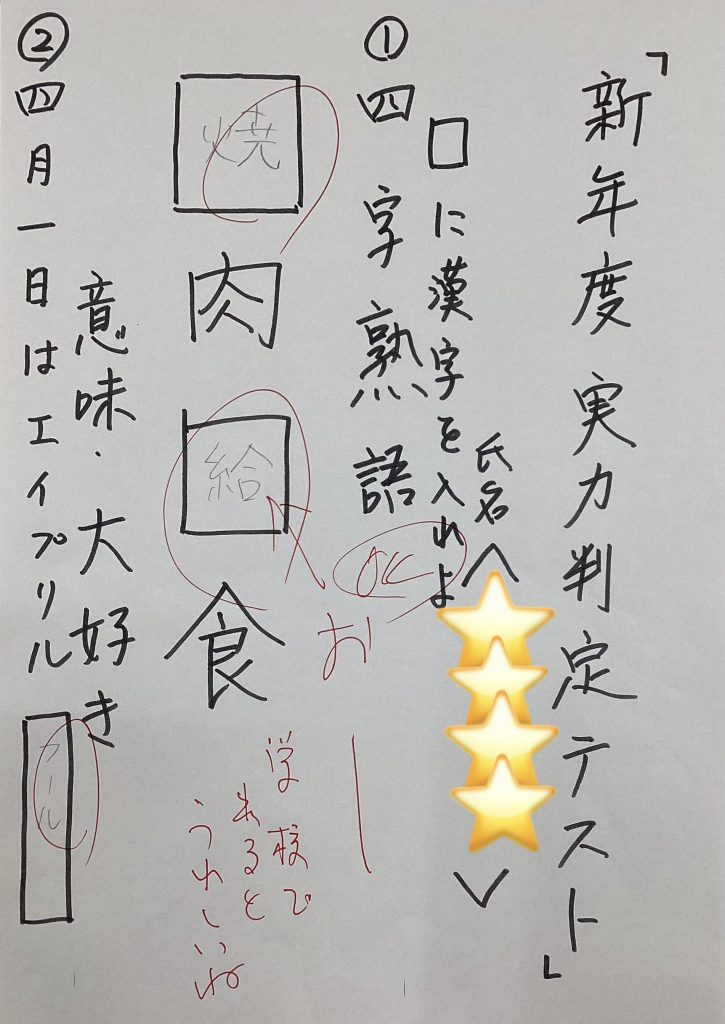 「新年度 実力判定テスト」
氏名〈 〉
□に漢字を入れよ
①四字熟語
OK
お
焼肉給食
学校で
あると
うれしいね
意味・大好き
②四月一日はエイプリル
カール